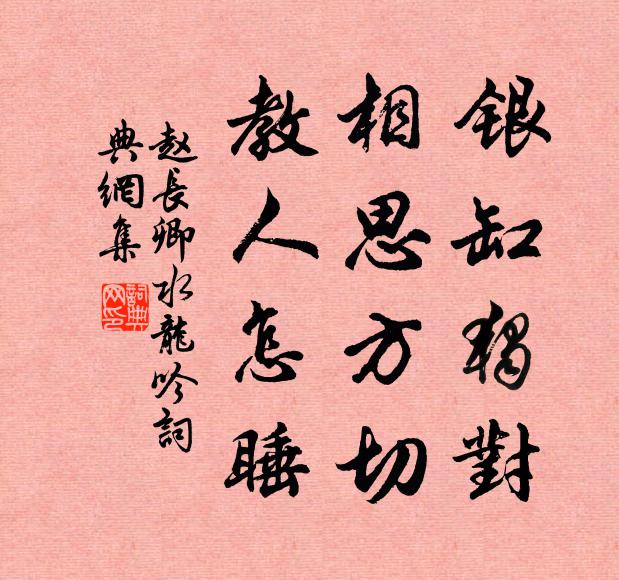 銀缸獨對
相思方切
教人怎睡
赵長卿水龍吟詞
典網集
詞典
网印